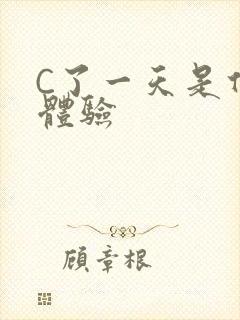 C了一天是
體驗
顧章根